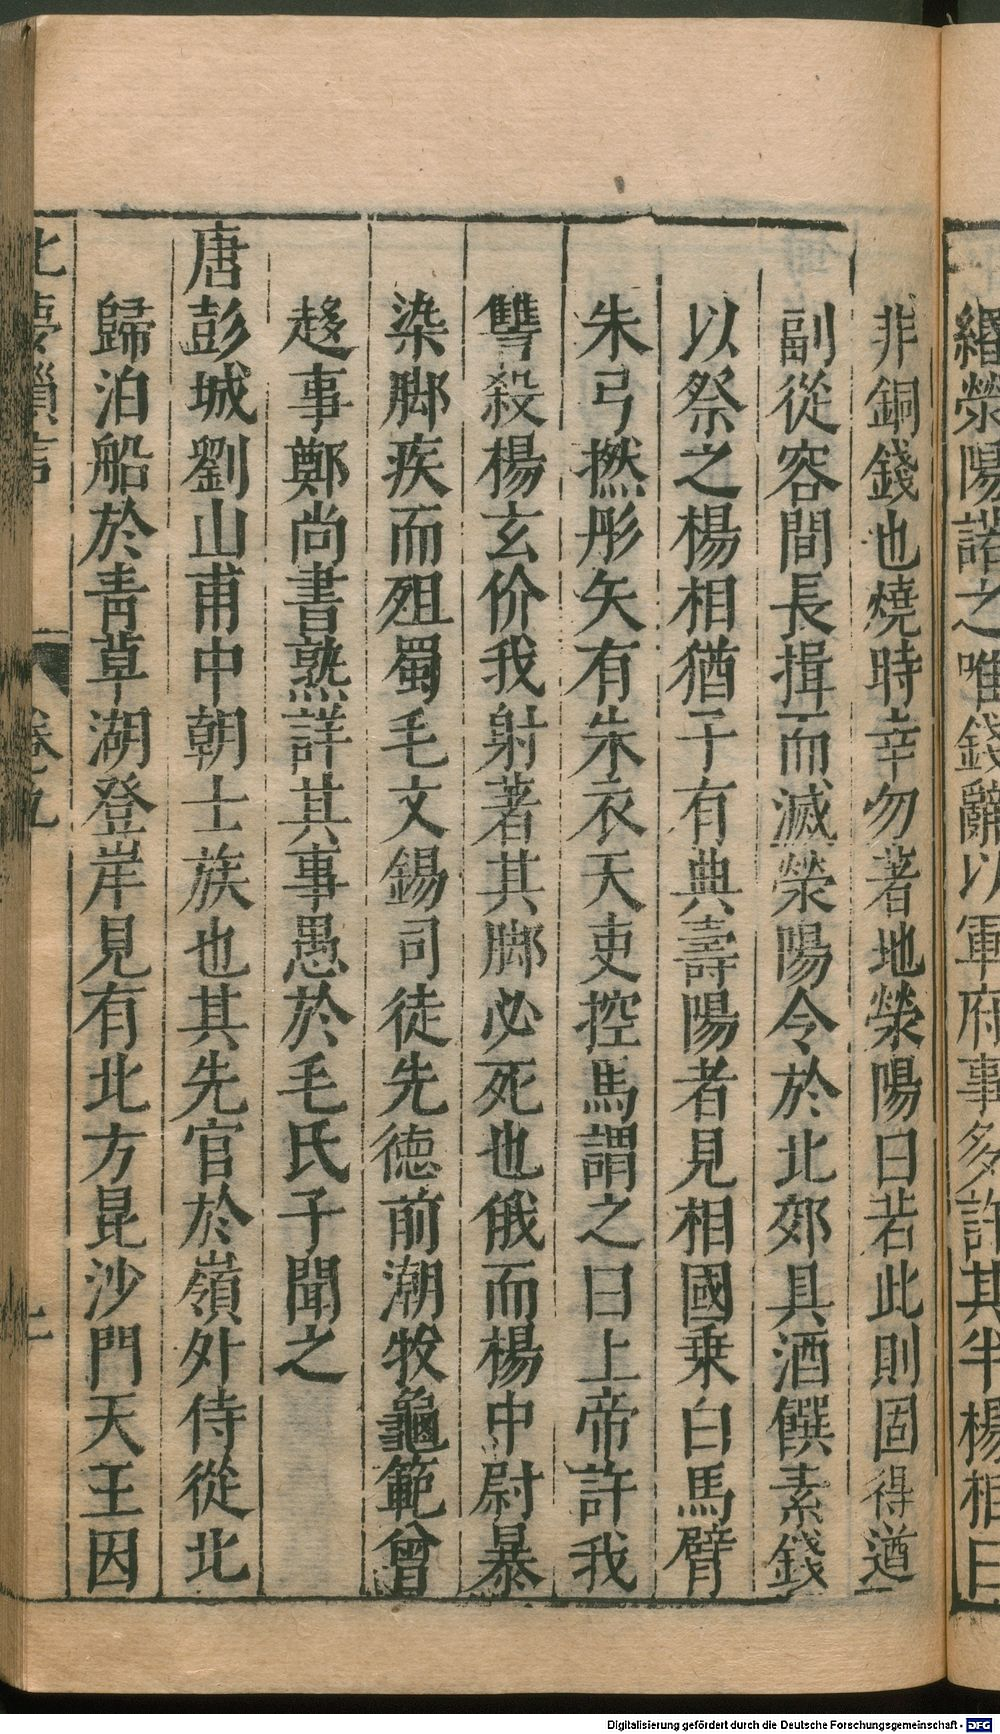 緡滎陽諾之唯錢辭以軍府事多許其半楊相曰
非銅錢也燒時幸勿著地滎陽曰若此則固得遵
副從容間長揖而滅滎陽令於北郊具酒饌素錢
以祭之楊相猶子有典壽陽者見相國乗白馬臂
朱弓撚彤矢有朱衣天吏控馬謂之曰上帝許我
讐殺楊玄价我射著其脚必死也俄而楊中尉暴
染脚疾而殂蜀毛文錫司徒先徳前潮牧龜範曾
趍事鄭尚書熟詳其事愚於毛氏子聞之
唐彭城劉山甫中朝士族也其先官於嶺外侍從北
歸泊船於青草湖登岸見有北方昆沙門天王因
北夢瑣言 卷九 二
Digitalisierung gefördert durch die Deutsche Forschungsgemeinschaft - DFG